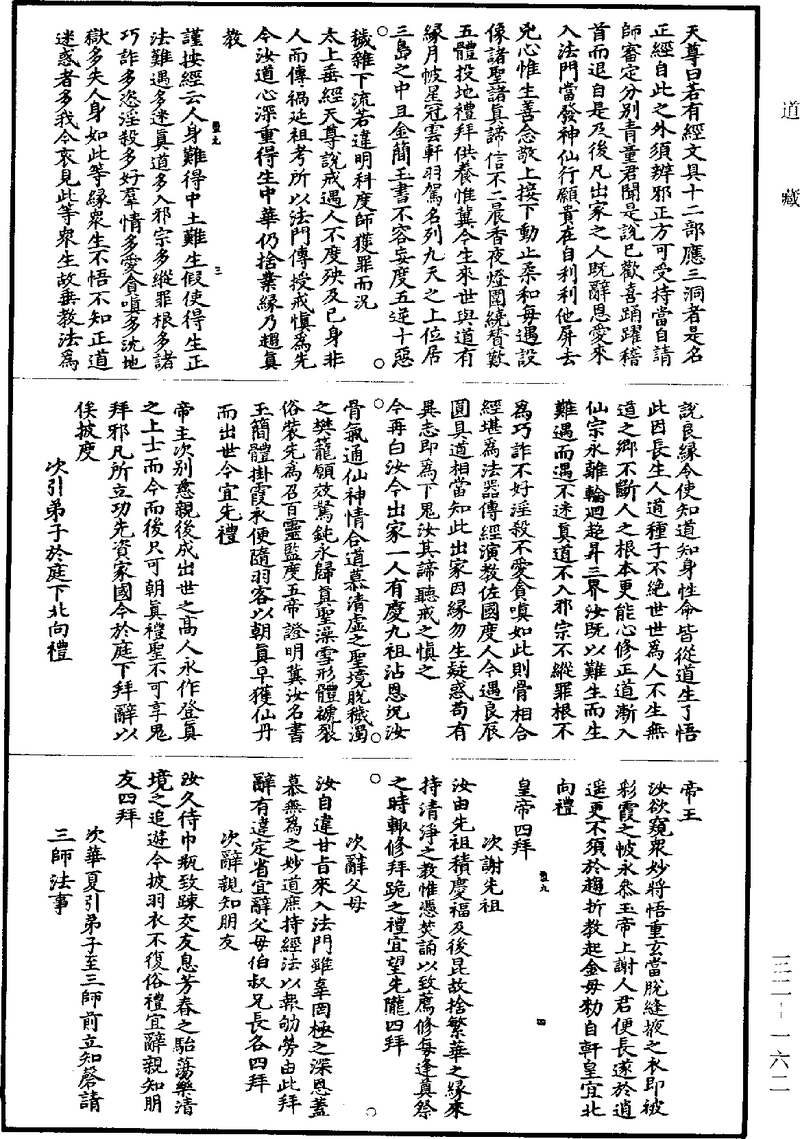 道藏
天尊曰若有經文具十二部應三洞者是名
正經自此之外須辨邪正方可受持當自請
師審定分別青童君聞是說已歡喜踊躍稽
首而退自是及後凡出家之人既辭恩愛來
入法門當發神仙行願貴在自利利他屏去
兇心惟生善念敬上接下動止柔和每遇設
像諸聖諸真諦信不二晨香夜燈圍繞贊歎
五體投地禮拜供養惟冀今生來世與道有
緣月帔星冠雲軒羽駕名列九天之上位居
三島之中且金簡玉書不容妄度五逆十惡
穢雜下流若違明科度師獲罪而況
太上垂經天尊說戒遇人不度殃及己身非
人而傳禍延祖考所以法門傳授戒慎為先
今汝道心深重得生中華仍捨業緣乃趨真
教
謹按經云人身難得中土難生假使得生正
法難遇多迷真道多入邪宗多縱罪根多諸
巧詐多恣淫殺多好羣情多愛貪嗔多沈地
獄多失人身如此等緣眾生不悟不知正道
迷惑者多我今哀見此等眾生故垂教法為
三
說良緣令使知道知身性命皆從道生了悟
此因長生人道種子不絕世世為人不生無
道之鄉不斷人之根本更能心修正道漸入
仙宗永離輪迴超昇三界汝既以難生而生
難遇而遇不迷真道不入邪宗不縱罪根不
為巧詐不好淫殺不愛貪嗔如此則骨相合
經堪為法器傳經演教佐國度人今遇良辰
圓具道相當知此出家因緣勿生疑惑苟有
異志即為下鬼汝其諦聽戒之慎之
今再白汝今出家一人有慶九祖沾恩況汝
骨氣通仙神情合道慕清虛之聖境脫穢濁
之樊籠願效駑鈍永歸真聖澡雪形體褫裂
俗裝先為召百靈監度五帝證明冀汝名書
玉簡體掛霞衣便隨羽客以朝真早獲仙丹
而出世今宜先禮
帝主次別慈親後成出世之高人永作登真
之上士而今而後只可朝真禮聖不可享鬼
拜邪凡所立功先資家國今於庭下拜辭以
俟披度
次引弟子於庭下北向禮
帝王
汝欲窺眾妙將悟重玄當脫縫掖之衣即被
彩霞之帔永忝玉帝上謝人君便長遂於逍
遥更不須於趨折教起金母勅自軒皇宜北
向禮
皇帝四拜
次謝先祖
汝由先祖積慶福及後昆故捨繁華之緣來
持清淨之教惟憑焚誦以致薦修每逢真祭
之時輒修拜跪之禮宜望先隴四拜
次辭父母
汝自違甘旨來入法門雖辜罔極之深恩蓋
慕無為之妙道庶持經法以報劬勞由此拜
辭有違定省宜辭父母伯叔兄長各四拜
次辭親知朋友
汝久侍巾瓶致踈交友息芳春之駘蕩樂清
境之追遊今披羽衣不復俗禮宜辭親知朋
友四拜
次華夏引弟子至三師前立知磬請
三師法事
四
三二-一六二